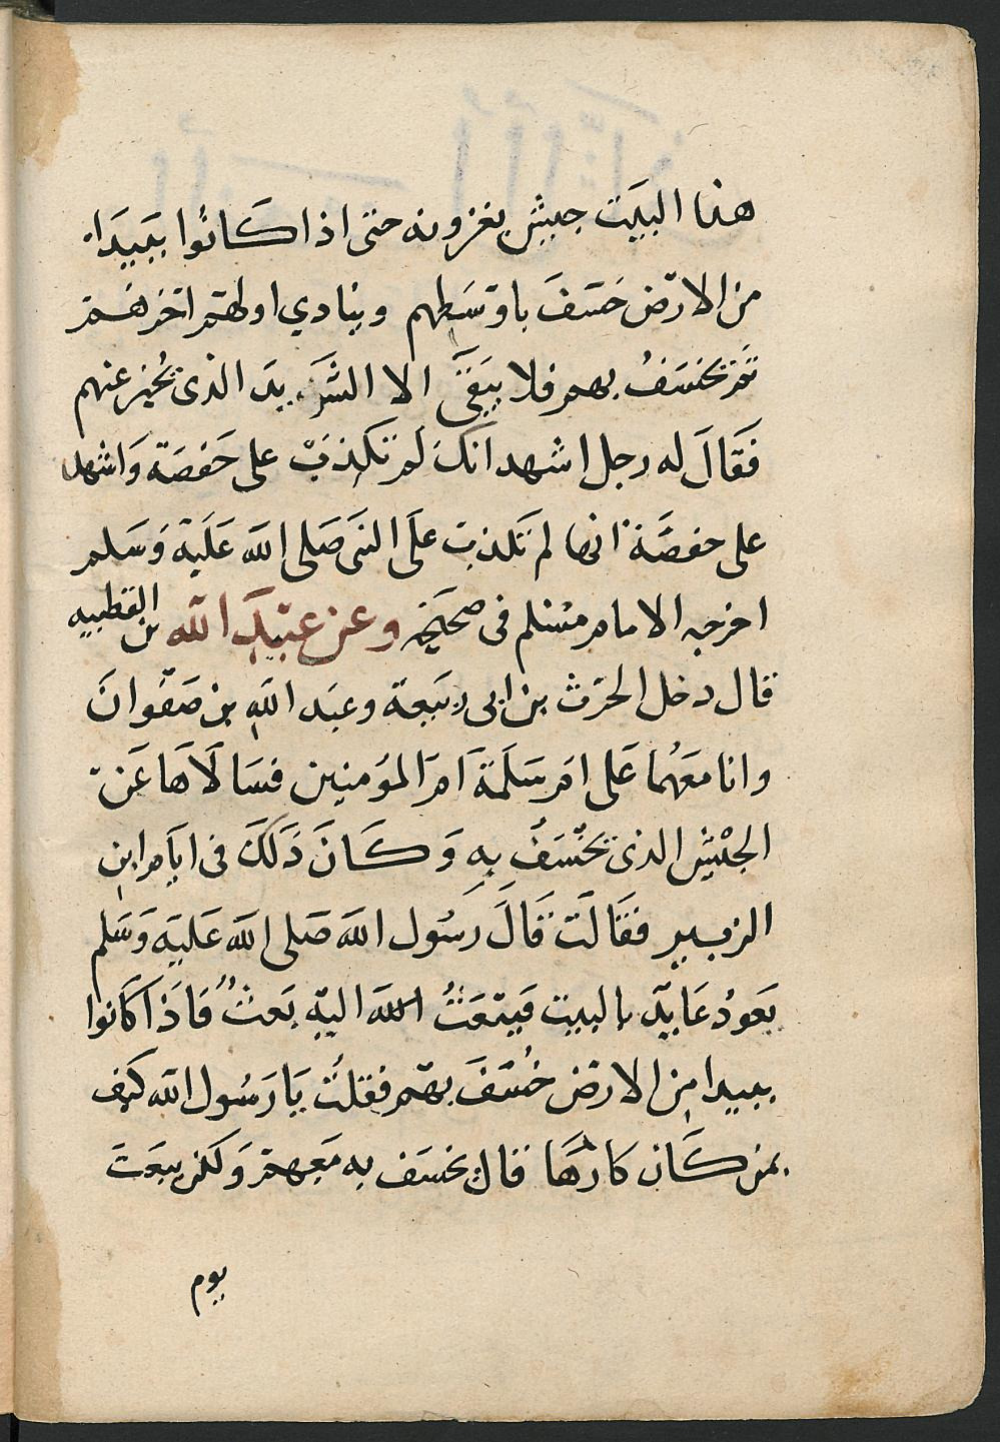 هذا البَيت جيش يغزونه حتى اذا كَانُوا بِبَيدَاء
من الارض خسَفَ باوسَطهم وينادي اولهم اخرهم
ثم يخسَفُ بهم فلا يبقَى الا الشَريد الذى يخبر عنهم
فَقَالَ له رجل اشهد انكَ لم تكذبْ على حَفصَة وَاشهد
على حفصَة انها لم تكذب علَى النبى صَلى الله عَلَيه وَسَلم
اخرجه الامام مسْلم فى صحيحه وعن عبيد الله بن القطبيه
قال دخل الحرث بن ابى ربيعَة وعبَد الله بن صَفوانَ
وانا معَهُما عَلى ام سَلَمَة اَم المؤمنين فسَالَاهَا عَن
الجيْش الذى يخْسَفُ بهِ وَكَانَ ذَلَكَ فى ايَام ابن
الزبير فقَالَت قَالَ رَسُول الله صَلى الله عَليَه وَسَلم
يَعودُ عَايد بالبيت فيبْعَثُ الله اليه بَعثٌ فَاذَا كَانوا
ببيدا من الارض خُسَفَ بهم فقلتُ يَا رَسُول الله كيف
بمن كَان كارهَا قال يخسَف به مَعهم وَلكن يبعَث
يوم